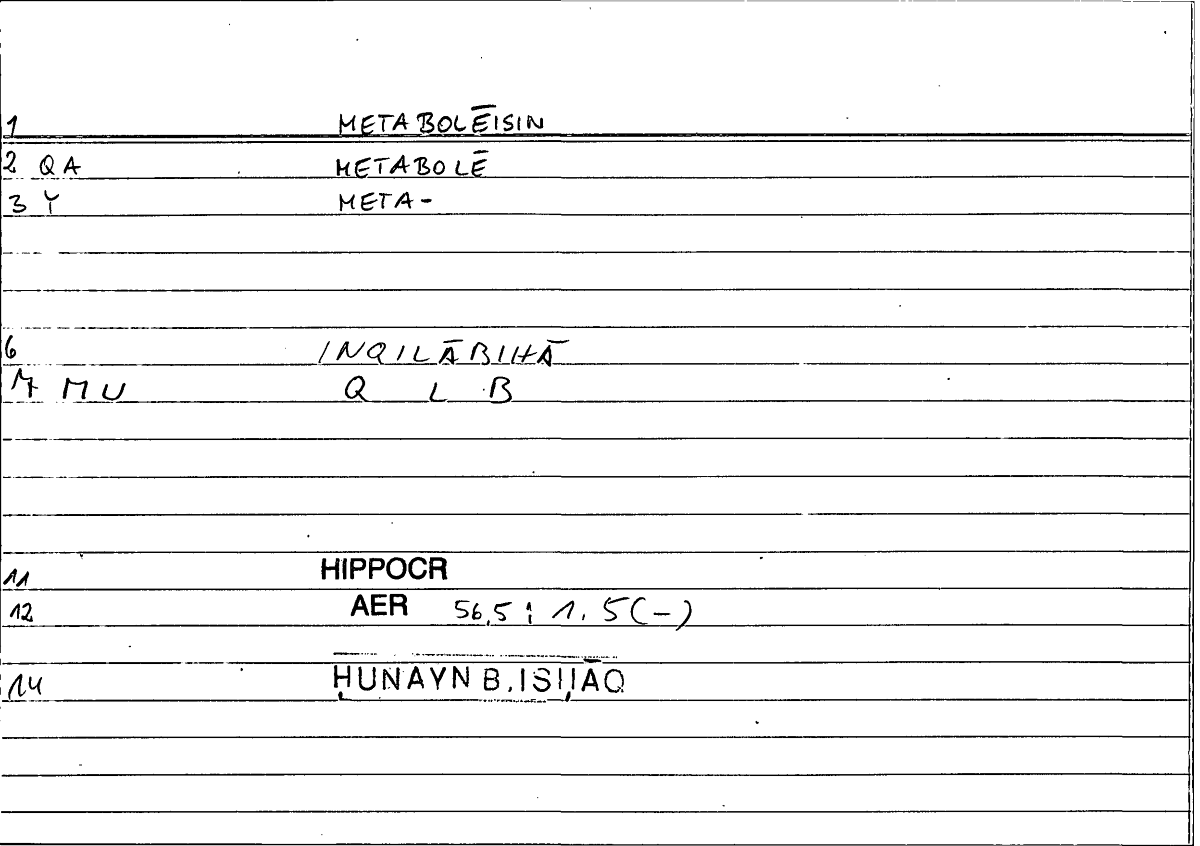 1 METABOLĒISIN
2 QA METABOLĒ
3 Y META-
6 INQILĀBIHĀ
7 MU Q L B
11 HIPPOCR
12 AER 56,5 : 1.5(-)
14 ḤUNAYN B. ISḤĀQ